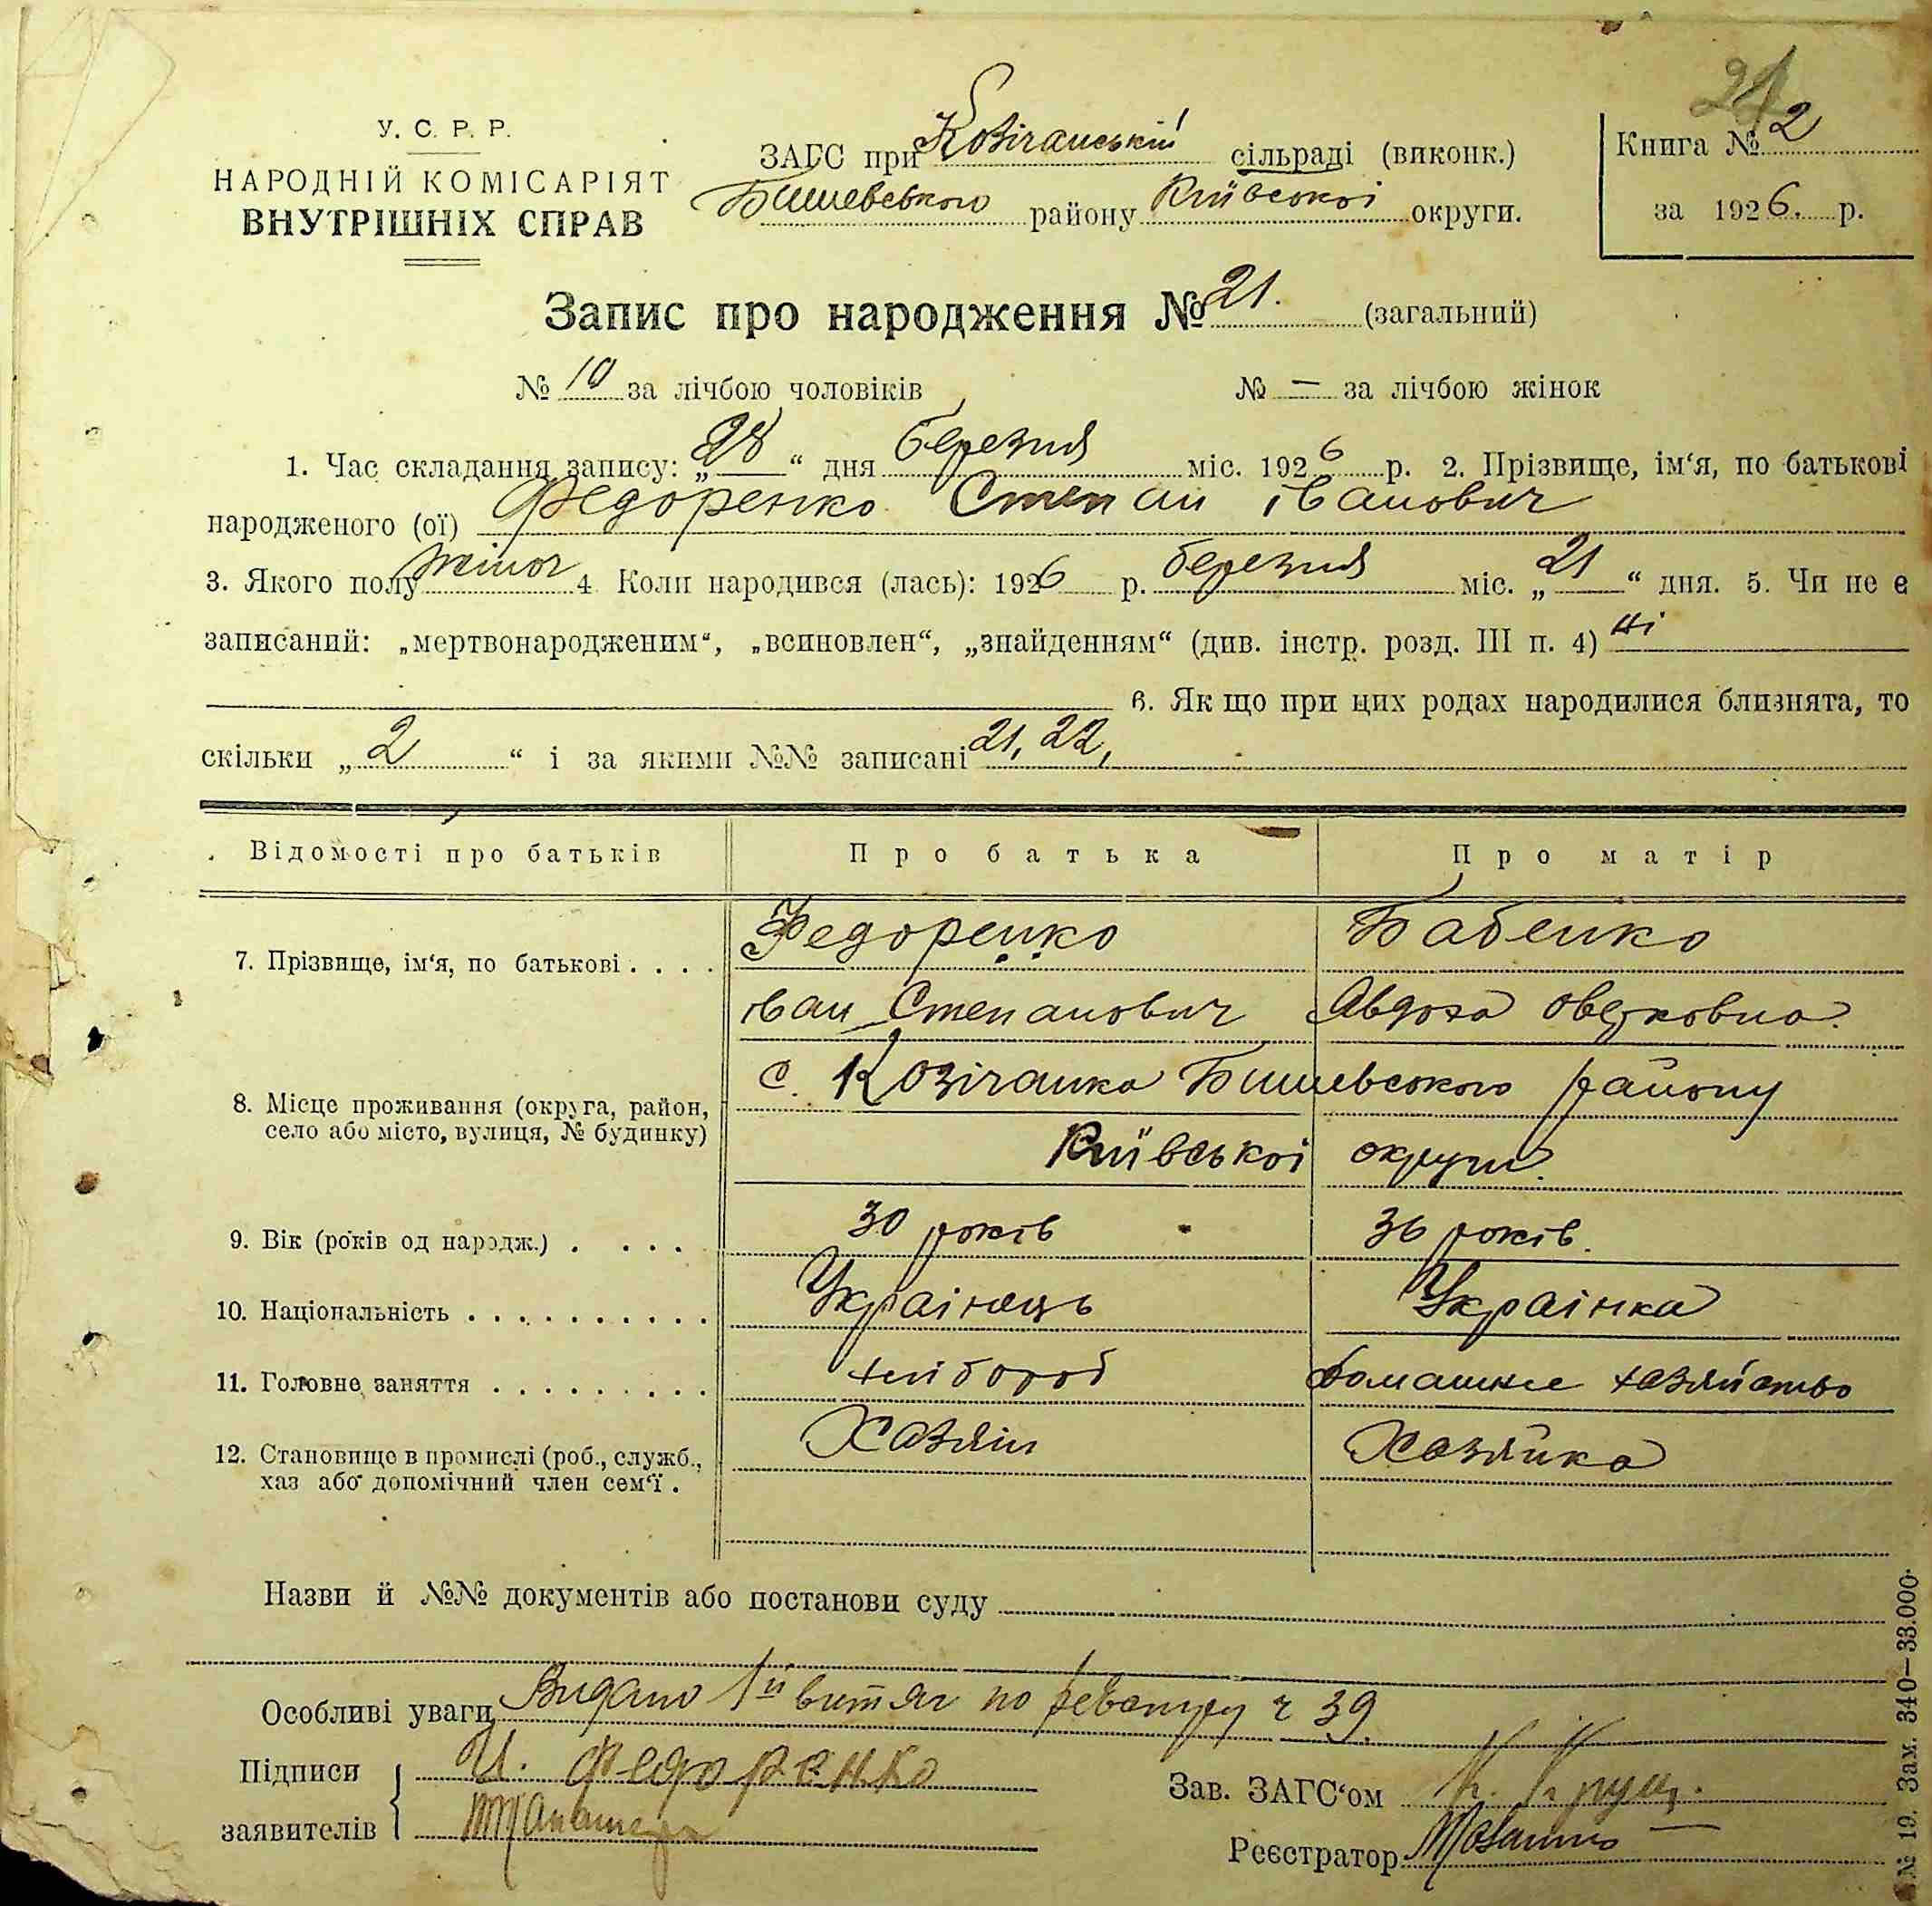 21
У. С. Р. Р.
НАРОДНІЙ КОМІСАРІЯТ
ВНУТРІШНІХ СПРАВ
ЗАГС при Козічанській сільраді (виконк.)
Бишевського району Київської округи.
Книга № 2
за 1926. р.
Запис про народження № 21. (загальний)
№ 10 за лічбою чоловіків № — за лічбою жінок
1. Час складання запису: „28“ дня березня міс. 1926 р. 2. Прізвище, ім‘я, по батькові
народженого (ої) Федоренко Степан іванович
3. Якого полу 4 Коли народився (лась): 1926 р. березня міс. „21“ дня. 5. Чи не є
записаний: „мертвонародженим“, „всиновлен“, „знайденням“ (див. інстр. розд. III п. 4) ні
6. Як що при цих родах народилися близнята, то
скільки „2“ і за якими №№ записані 21, 22,
Відомості про батьків Про батька Про матір
7. Прізвище, ім‘я, по батькові . . . . Федоренко Бабенко
іван Степанович Явдоха
8. Місце проживання (округа, район,
село або місто, вулиця, № будинку)
с. Козічанка Бишевського району
Київської округи.
9. Вік (років од народж.) . . . . 30 років 36 років.
10. Національність . . . . . . . . . . Українець Українка
11. Головне заняття . . . . . . . . . хлібороб домашнє хазяйство
12. Становище в промислі (роб., служб.,
хаз або допомічний член сем‘ї .
Хазяін Хазяйка
Назви й №№ документів або постанови суду
Особливі уваги Видано 1й витяг по ч 39.
Підписи
заявителів
И. Федоренко
Зав. ЗАГС‘ом
Реєстратор
№ 19. Зам. 340—33.000.